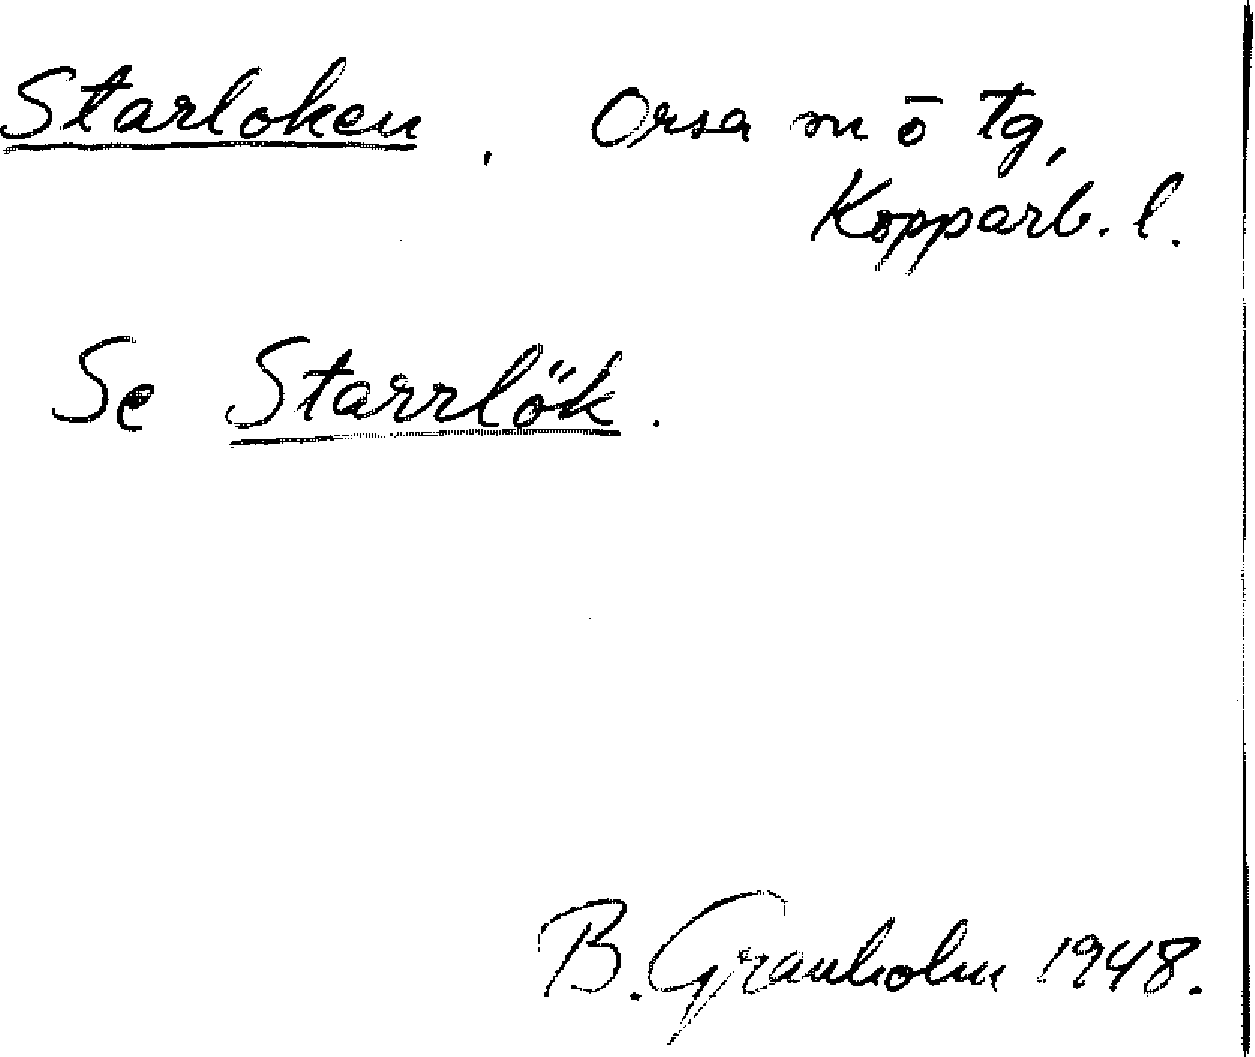 Starloken, Orsa m ō tg,
Kopparb. l.
Se Starrlök.
B. Granholm 1948.